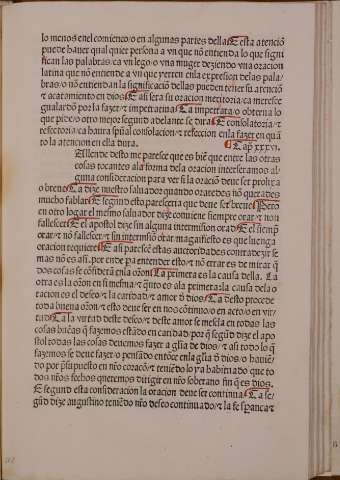 lo menos enel comienço/o en algunas partes della Esta atenciõ
puede hauer qual quier persona a vn que nõ entienda lo que signi
fican las palabras/ca vn lego/o vna muger deziendo vna oracion
latina que nõ entiende a vn que yerren enla expresion delas pala/
bras/o nõ entiendan la significaciõ dellas pueden tener su atenciõ
⁊ acatamiento en dios E asi sera su oracion meritoria/ca meresce
gualardõ por la fazer/⁊ impetratiua Ca impetrara/o obterna lo
que pide/o otro mejor segund adelante se dira E consolatoria/⁊
refectoria/ca haura spũal consolacion/⁊ refeccion enla fazer en quã
to la atencion en ella dura. Capº xxxvi.
Allende desto me paresce que es biẽ que entre las otras
cosas tocantes ala forma dela oracion interseramos al
guna consideracion para ver si la oraciõ deue ser prolixa
o breue Ca dize nuestro saluador quando orardes nõ querades
mucho fablar E segund esto paresceria que deue ser breue Pero
en otro logar el mesmo saluador dize conuiene siempre orar/⁊ non
fallescer E el apostol dize sin alguna intermision orad E el siemp̃
orar/⁊ nõ fallescer/⁊ sin intermisiõ orar magnifiesto es que luenga
oracion requiere E asi paresce estas auctoridades contradezir se
mas nõ es asi. por ende pa entender esto/⁊ nõ errar es de mirar q̃
dos cosas se cõsiderã enla oraõn Ca primera es la causa della. La
otra es la oraõn en si mesma/⁊ quãto es ala primera: la causa dela o
racion es el deseo/⁊ la caridad/⁊ amor d̃ dios Ca desto procede
toda buena oraõn/⁊ esto deue ser en nos cõtinuo/o en acto/o en vir/
tud Ca la virtud deste deseo/⁊ deste amor se mescla en todas las
cosas buẽas q̃ fazemos estãdo en caridad/por q̃ segũd dize el apo
stol todas las cosas deuemos fazer a gl̃ia de dios/⁊ asi todo lo q̃
fazemos se deue fazer/o pensãdo entõce enla gl̃ia d̃ dios/o hauiẽ/
do por p̃supuesto en nr̃o coraçõ/⁊ teniẽdo lo ya habituado que to
dos nr̃os fechos queremos dirigir en nr̃o soberano fin q̃ es dios.
E segund esta consideracion la oracion deue ser continua Ca se/
gũd dize augustino teniẽdo nr̃o deseo continuado/⁊ la fe sp̃ança/⁊